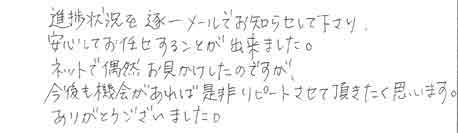 進捗状況を逐一メールでお知らせして下さり、
安心してお任せすることが出来ました。
ネットで偶然お見かけしたのですが、
今後も機会があれば是非リピートさせて頂きたく思います。
ありがとうございました。